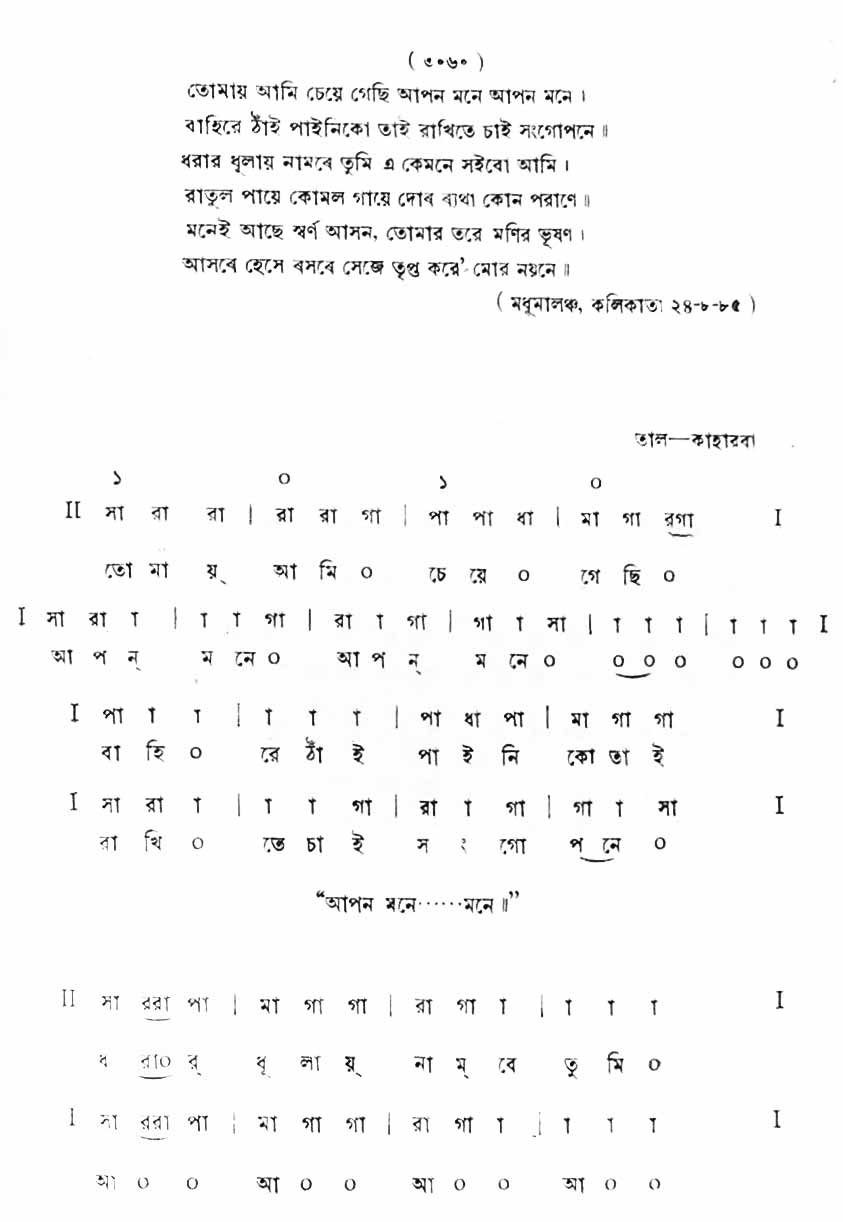 ( ৩০৬০ )
তোমায় আমি চেয়ে গেছি আপন মনে আপন মনে ।
বাহিরে ঠাঁই পাইনিকো তাই রাখিতে চাই সংগোপনে ॥
ধরার ধূলায় নামবে তুমি এ কেমনে সইবো আমি ।
রাতুল পায়ে কোমল গায়ে দোব ব্যথা কোন পরাণে ॥
মনেই আছে স্বর্ণ আসন, তোমার তরে মণির ভূষণ ।
আসবে হেসে বসবে সেজে তৃপ্ত করে' মোর নয়নে ॥
( মধুমালঞ্চ, কলিকাতা ২৪-৮-৮৫ )
তাল—কাহারবা
১ ০ ১ ০
II সা রা রা | রা রা গা | পা পা ধা | মা গা রগা I
তো মা য়্ আ মি ০ চে য়ে ০ গে ছি ০
I সা রা া | া া গা | রা া গা | গা া সা | া া া | া া া I
আ প ন্ ম নে ০ আ প ন্ ম নে ০ ০ ০ ০ ০ ০ ০
I পা া া | া া া | পা ধা পা | মা গা গা I
বা হি ০ রে ঠাঁ ই পা ই নি কো তা ই
I সা রা া | া া গা | রা া গা | গা া সা I
রা খি ০ তে চা ই স ং গো প নে ০
“আপন মনে······মনে ॥”
II সা ররা পা | মা গা গা | রা গা া | া া া I
ধ রা০ র্ ধূ লা য়্ না ম্ বে তু মি ০
I সা ররা পা | মা গা গা | রা গা া | া া া I
আ ০ ০ আ ০ ০ আ ০ ০ আ ০ ০